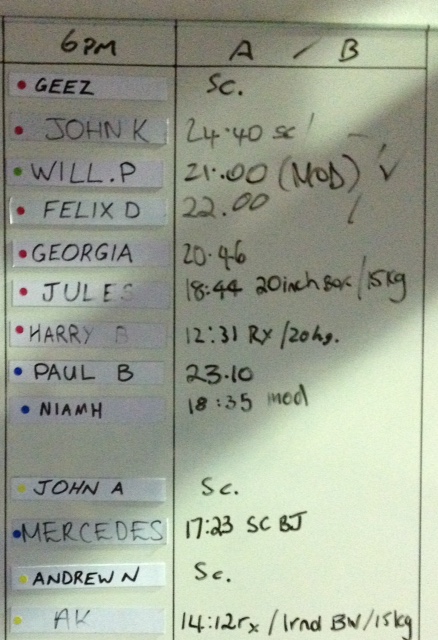 6PM A / B
GEEZ Sc.
JOHN K 24:40 sc
WILL.P 21:00 (MOD)
FELIX D 22.00
GEORGIA 20.46
JULES 18:44 20inch Box/15kg
HARRY B 12:31 Rx /20kg.
PAUL B 23.10
NIAMH 18:35 mod
JOHN A Sc.
MERCEDES 17:23 SC BJ
ANDREW N Sc.
AK 14:12rx/1rnd BW/15kg